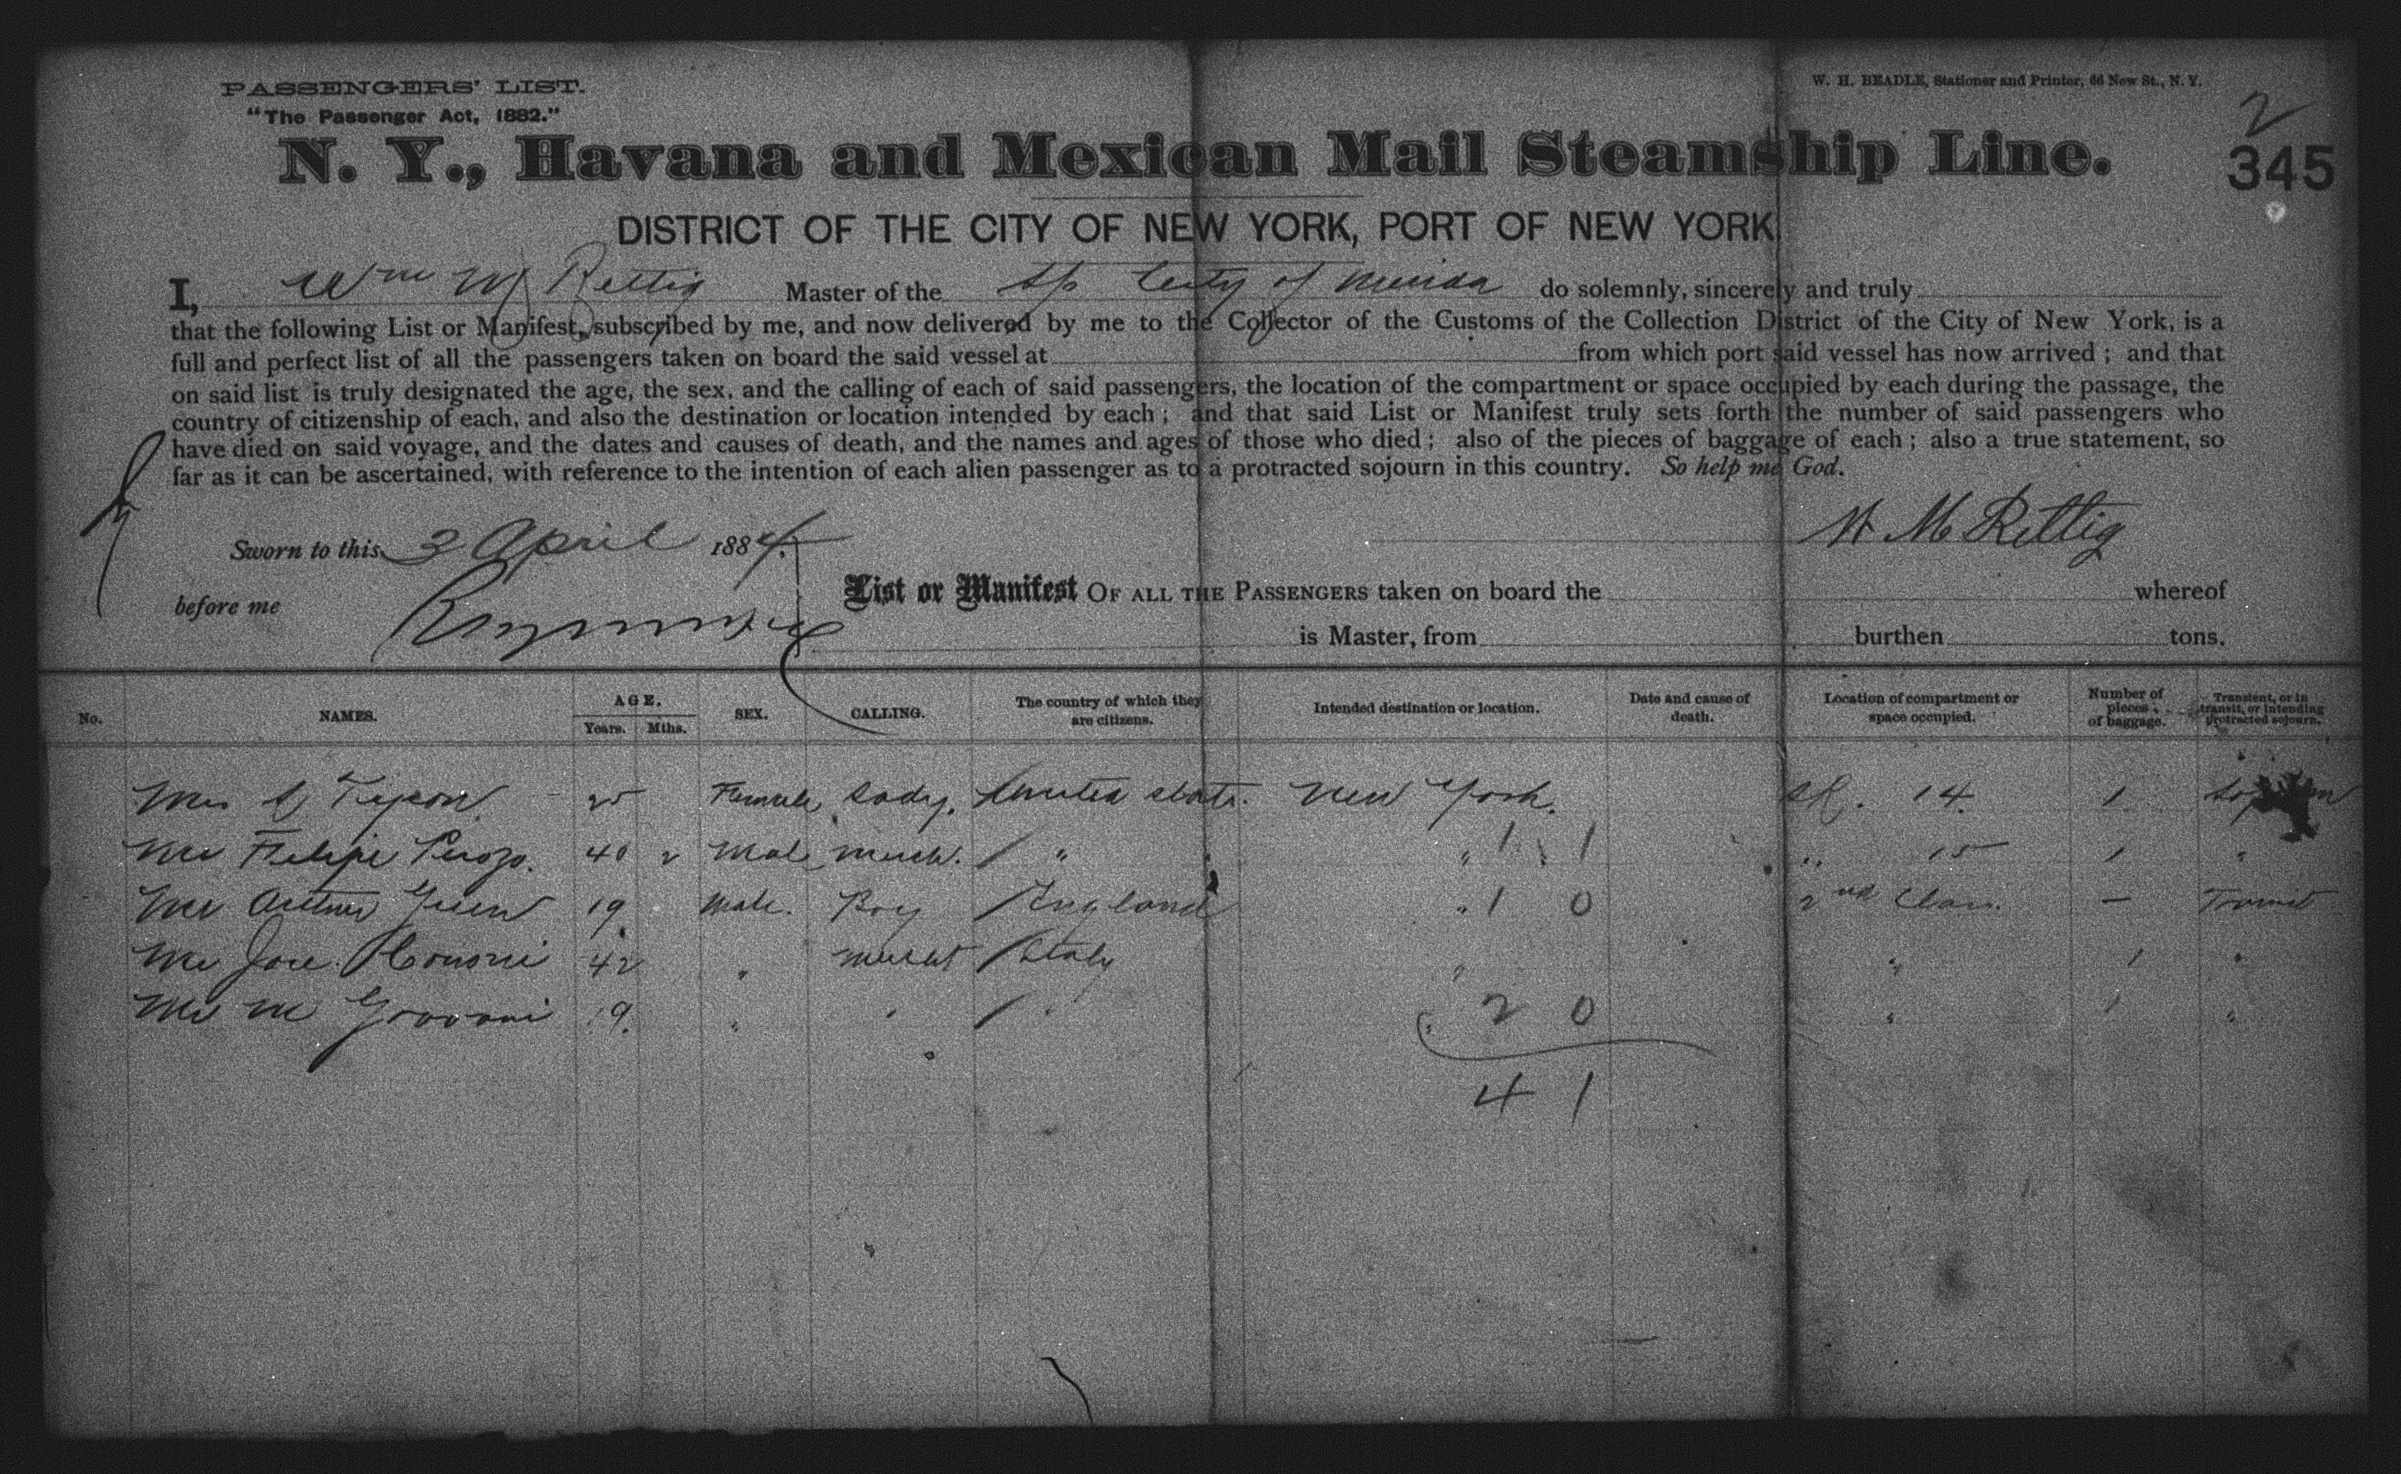 PASSENGERS' LIST.
W. H. BEADLE, Stationer and Printer, 66 New St., N. Y.
"The Passenger Act, 1882."
2
N. Y., Havana and Mexican Mail Steamship Line.
345
DISTRICT OF THE CITY OF NEW YORK, PORT OF NEW YORK
I, Wm M Rettig Master of the City of Merida do solemnly, sincerely and truly
that the following List or Manifest, subscribed by me, and now delivered by me to the Collector of the Customs of the Collection District of the City of New York, is a
full and perfect list of all the passengers taken on board the said vessel at from which port said vessel has now arrived ; and that
on said list is truly designated the age, the sex, and the calling of each of said passengers, the location of the compartment or space occupied by each during the passage, the
country of citizenship of each, and also the destination or location intended by each ; and that said List or Manifest truly sets forth the number of said passengers who
have died on said voyage, and the dates and causes of death, and the names and ages of those who died ; also of the pieces of baggage of each ; also a true statement, so
far as it can be ascertained, with reference to the intention of each alien passenger as to a protracted sojourn in this country. So help me God.
W M Rettig
Sworn to this 3 April 1884.
before me
List or Manifest OF ALL THE PASSENGERS taken on board the whereof
is Master, from burthen tons.
No. NAMES. AGE. Years. Mths. SEX. CALLING. The country of which they are citizens. Intended destination or location. Date and cause of death. Location of compartment or space occupied. Number of pieces of baggage. Transient, or in transit, or intending protracted sojourn.
Mrs 25 Female Lady. United States. New York. 14 1
Mr Felipe 40 Male Merch. " " 1 1 " 15 1 "
Mr Arthur Green 19 Male. Boy England " 1 0 2nd Class. — Transit
Mr Jose 42 " Mercht Italy " " 1 "
Mr M 19. " " " " 2 0 " 1 "
4 1